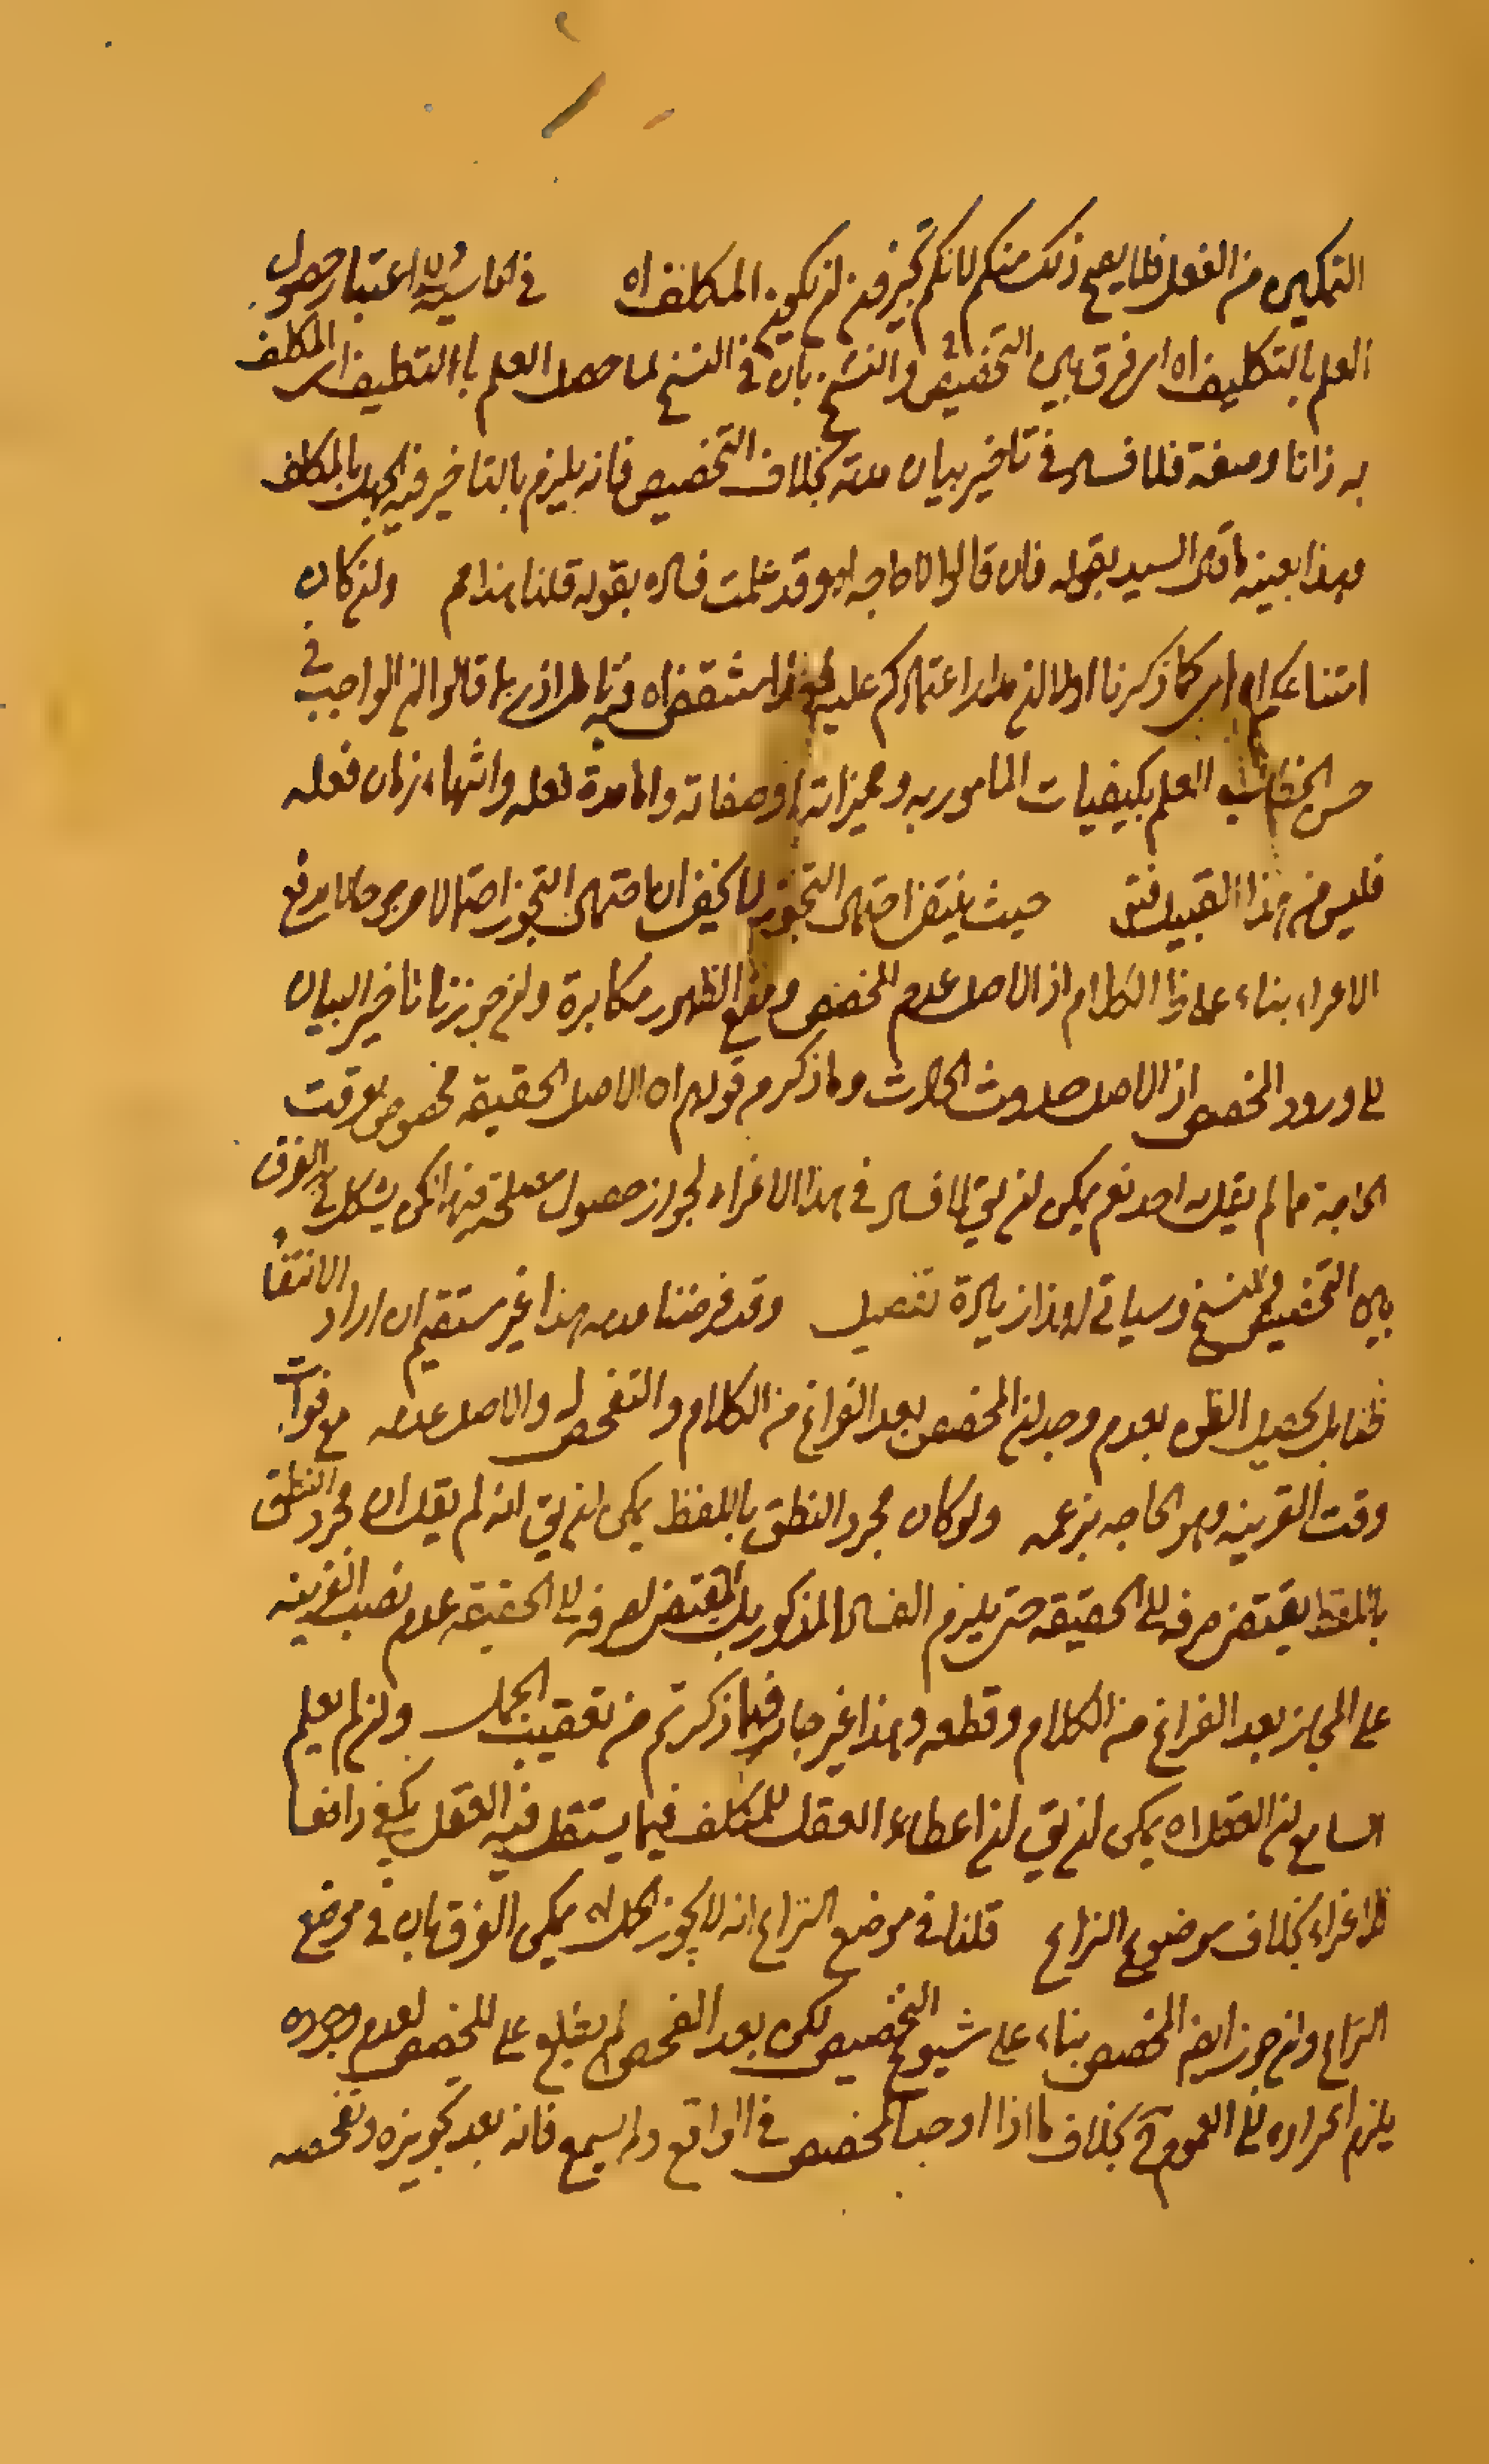 التمكن من الفعل فلا يصح ذلك منكم لانكم تجيزون ان يكون المكلف اه في الحاشية اعتبار حصول
العلم بالتكليف اه اى فرق بين التخصيص والنسخ بان في النسخ لما حصل العلم بالتكليف اى المكلف
به ذاتا وصفة فلا فساد في تاخير بيان مدته بخلاف التخصيص فانه يلزم بالتاخير فيه الجهل بالمكلف
وهذا بعينه ما قال السيد بقوله فان قالوا لا حاجة اه وقد علمت فساده بقوله قلنا هذا هدم وان كان
امتناعكم اه اى كما ذكرنا اولا ان مدار اعتمادكم عليه منتقض اه فتامل اذ ربما قالوا ان الواجب في
حسن الخطاب العلم بكيفيات المامور به ومميزاته وصفاته واما مدة فعله وانتهاء زمان فعله
فليس من هذا القبيل فتق حيث ينتفى احتمال التجوز لا يخفى ان احتمال التجوز احتمالا مرجوحا لا يدفع
الاغراء بناء على هذا الكلام اذ الاصل عدم المخصص ومنع الظهور مكابرة وان جوزنا تاخير البيان
الى ورود المخصص اذ الاصل حدوث الحادث وما ذكر من قولهم ان الاصل الحقيقة مخصوص بوقت
الحاجة مما لم يقل به احد نعم يمكن ان يق لا فساد في هذا الاغراء لجواز حصول مصلحة فيه لكن يشكل ح الفرق
بين التخصيص والنسخ وسياتى لهذا زيادة تفصيل وقد فرضنا عدمه هذا غير مستقيم ان اراد الانتفاء
ظنا بل يحصل الظن بعدم وجدان المخصص بعد الفراغ من الكلام والتفحص له والاصل عدمه مع فوات
وقت القرينه وهو الحاجه بزعمه ولو كان مجرد النطق باللفظ يمكن ان يق انه لم يقل ان مجرد النطق
باللفظ يقتضى صرفه الى الحقيقه حتى يلزم الفساد المذكور بل المقتضى لصرفه الى الحقيقة عدم نصب القرينه
على المجاز بعد الفراغ من الكلام وقطعه وهذا غير جار فيما ذكرتم من تعقيب الجمل وان لم يعلم
السامع ان العقل اه يمكن ان يق ان اعطاء العقل للمكلف فيما يستقل فيه العقل يكفى رافعا
للاغراء بخلاف موضوع النزاع قلنا في موضع النزاع انه لا يجوز لكل اه يمكن الفرق بان في موضع
النزاع وان جوز ايضا المخصص بناء على شيوع التخصيص لكن بعد الفحص لم يطلع على المخصص لعدم وجوده
يلزم اغراره الى العموم ح بخلاف ما اذا اوجد المخصص في الواقع ولم يسمع فانه بعد تجويزه وتفحصه